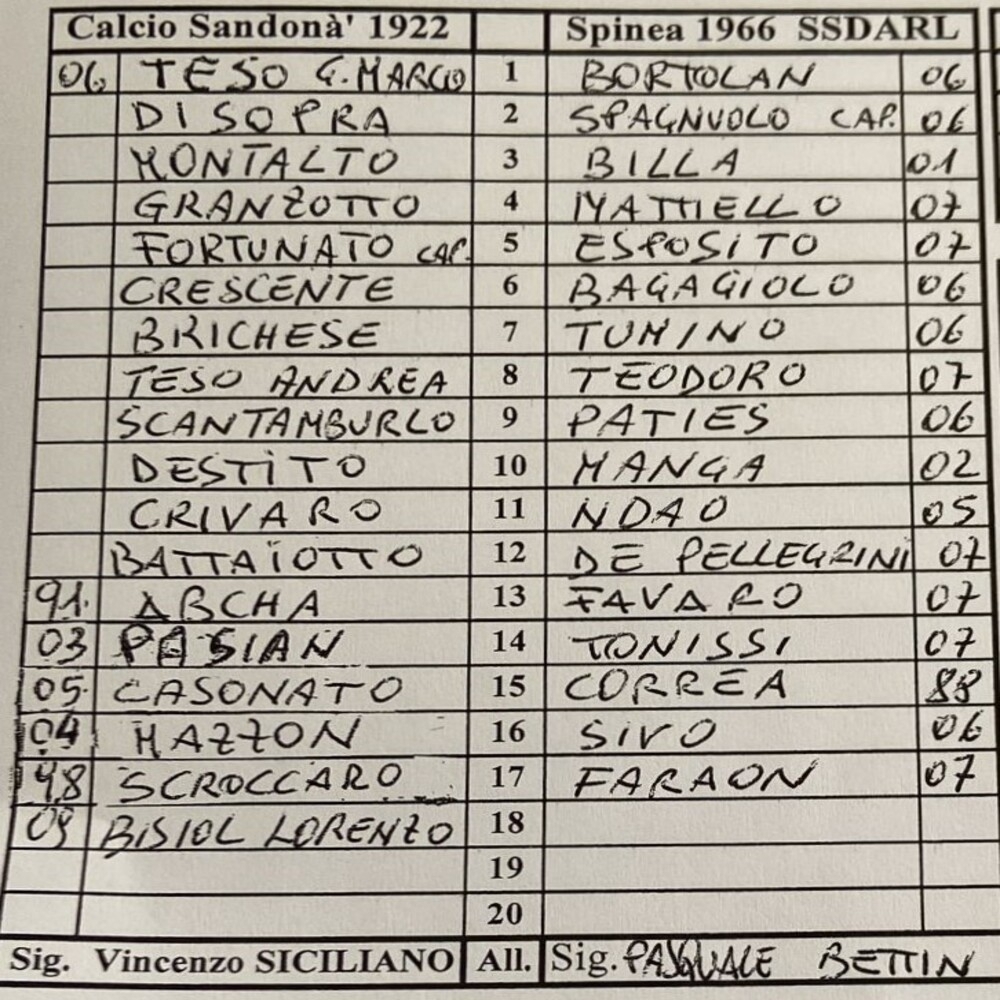 Calcio Sandonà' 1922 Spinea 1966 SSDARL
06 TESO G. MARCO 1 BORTOLAN 06
DISOPRA 2 SPAGNUOLO CAP. 06
MONTALTO 3 BILLA 01
GRANZOTTO 4 MATTIELLO 07
FORTUNATO CAP. 5 ESPOSITO 07
CRESCENTE 6 BAGAGIOLO 06
BRICHESE 7 TUMINO 06
TESO ANDREA 8 TEODORO 07
SCANTAMBURLO 9 PATIES 06
DESTITO 10 MANGA 02
CRIVARO 11 NDAO 05
BATTAIOTTO 12 DE PELLEGRINI 07
91. ABCHA 13 FAVARO 07
03 PASIAN 14 TONISSI 07
05. CASONATO 15 CORREA 88
04 MAZZON 16 SIVO 06
98 SCROCCARO 17 FARAON 07
BISIOL LORENZO 18
19
20
Sig. Vincenzo SICILIANO All. Sig. PASQUALE BETTIN